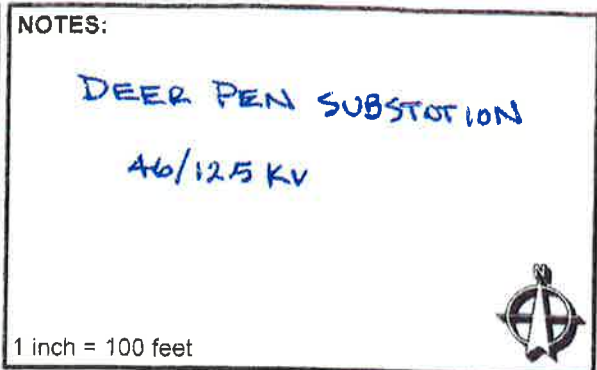 NOTES:
DEER PEN SUBSTATION
46/12.5 KV
N
1 inch = 100 feet